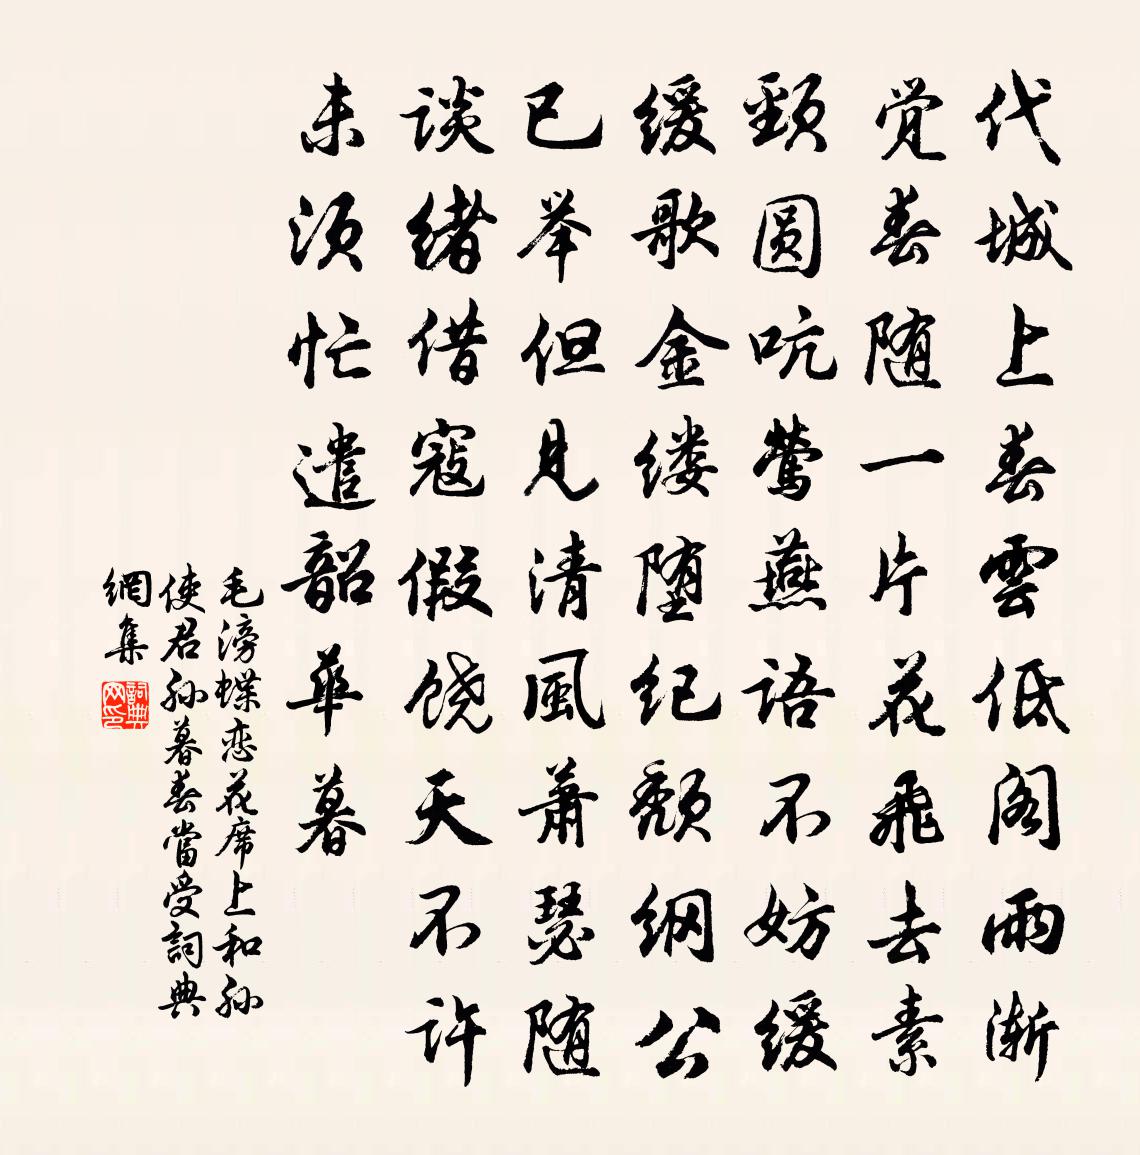 代城上春雲低阁雨渐
觉春随一片花飞去素
颈圆吭莺燕语不妨缓
缓歌金缕堕纪颓纲公
已举但见清風萧瑟随
谈绪借寇假饶天不许
未须忙遣韶華暮
毛滂蝶恋花席上和孙
使君孙暮春當受詞典
網集
詞典
网印